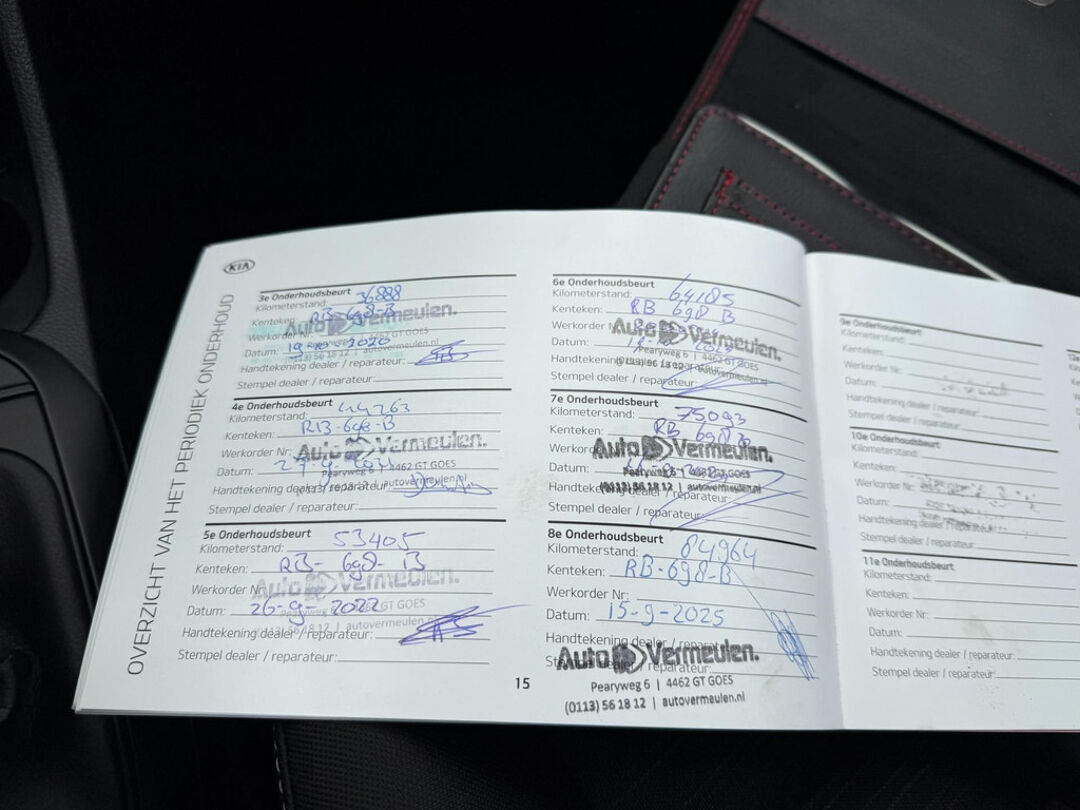 KIA
OVERZICHT VAN HET PERIODIEK ONDERHOUD
3e Onderhoudsbeurt
Kilometerstand: 36888
Kenteken: RB-698-B
Auto Vermeulen.
Werkorder Nr:
4462 GT GOES
Datum: 2020
56 18 12 | autovermeulen.nl
Handtekening dealer / reparateur:
Stempel dealer / reparateur:
4e Onderhoudsbeurt
Kilometerstand: 44263
Kenteken: RB-698-B
Auto Vermeulen.
Werkorder Nr:
Pearyweg 6 | 4462 GT GOES
Datum:
(0113) 56 18 12 | autovermeulen.nl
Handtekening dealer / reparateur:
Stempel dealer / reparateur:
5e Onderhoudsbeurt
Kilometerstand: 53405
Kenteken: RB-698-B
Auto Vermeulen.
Werkorder Nr:
GT GOES
Datum: 26-9-2022
18 12 | autovermeulen.nl
Handtekening dealer / reparateur:
Stempel dealer / reparateur:
15
6e Onderhoudsbeurt
Kilometerstand: 64185
Kenteken: RB 698 B
Werkorder
Auto Vermeulen.
Datum:
Pearyweg 6 | 4462 GT GOES
Handtekening dealer / reparateur:
(0113) 56 18 12 | autovermeulen.nl
Stempel dealer / reparateur:
7e Onderhoudsbeurt
Kilometerstand: 75093
Kenteken: RB 698 B
Werkorder
Auto Vermeulen.
Datum:
Pearyweg 6 | 4462 GT GOES
(0113) 56 18 12 | autovermeulen.nl
Handtekening dealer / reparateur:
Stempel dealer / reparateur:
8e Onderhoudsbeurt
Kilometerstand: 84964
Kenteken: RB-698-B
Werkorder Nr:
Datum: 15-9-2025
Handtekening dealer / reparateur:
Stempel dealer / reparateur:
Auto Vermeulen.
Pearyweg 6 | 4462 GT GOES
(0113) 56 18 12 | autovermeulen.nl
9e Onderhoudsbeurt
Kilometerstand:
Kenteken:
Werkorder Nr:
Datum:
Handtekening dealer / reparateur:
Stempel dealer / reparateur:
10e Onderhoudsbeurt
Kilometerstand:
Kenteken:
Werkorder Nr:
Datum:
Handtekening dealer / reparateur:
Stempel dealer / reparateur:
11e Onderhoudsbeurt
Kilometerstand:
Kenteken:
Werkorder Nr:
Datum:
Handtekening dealer / reparateur:
Stempel dealer / reparateur: